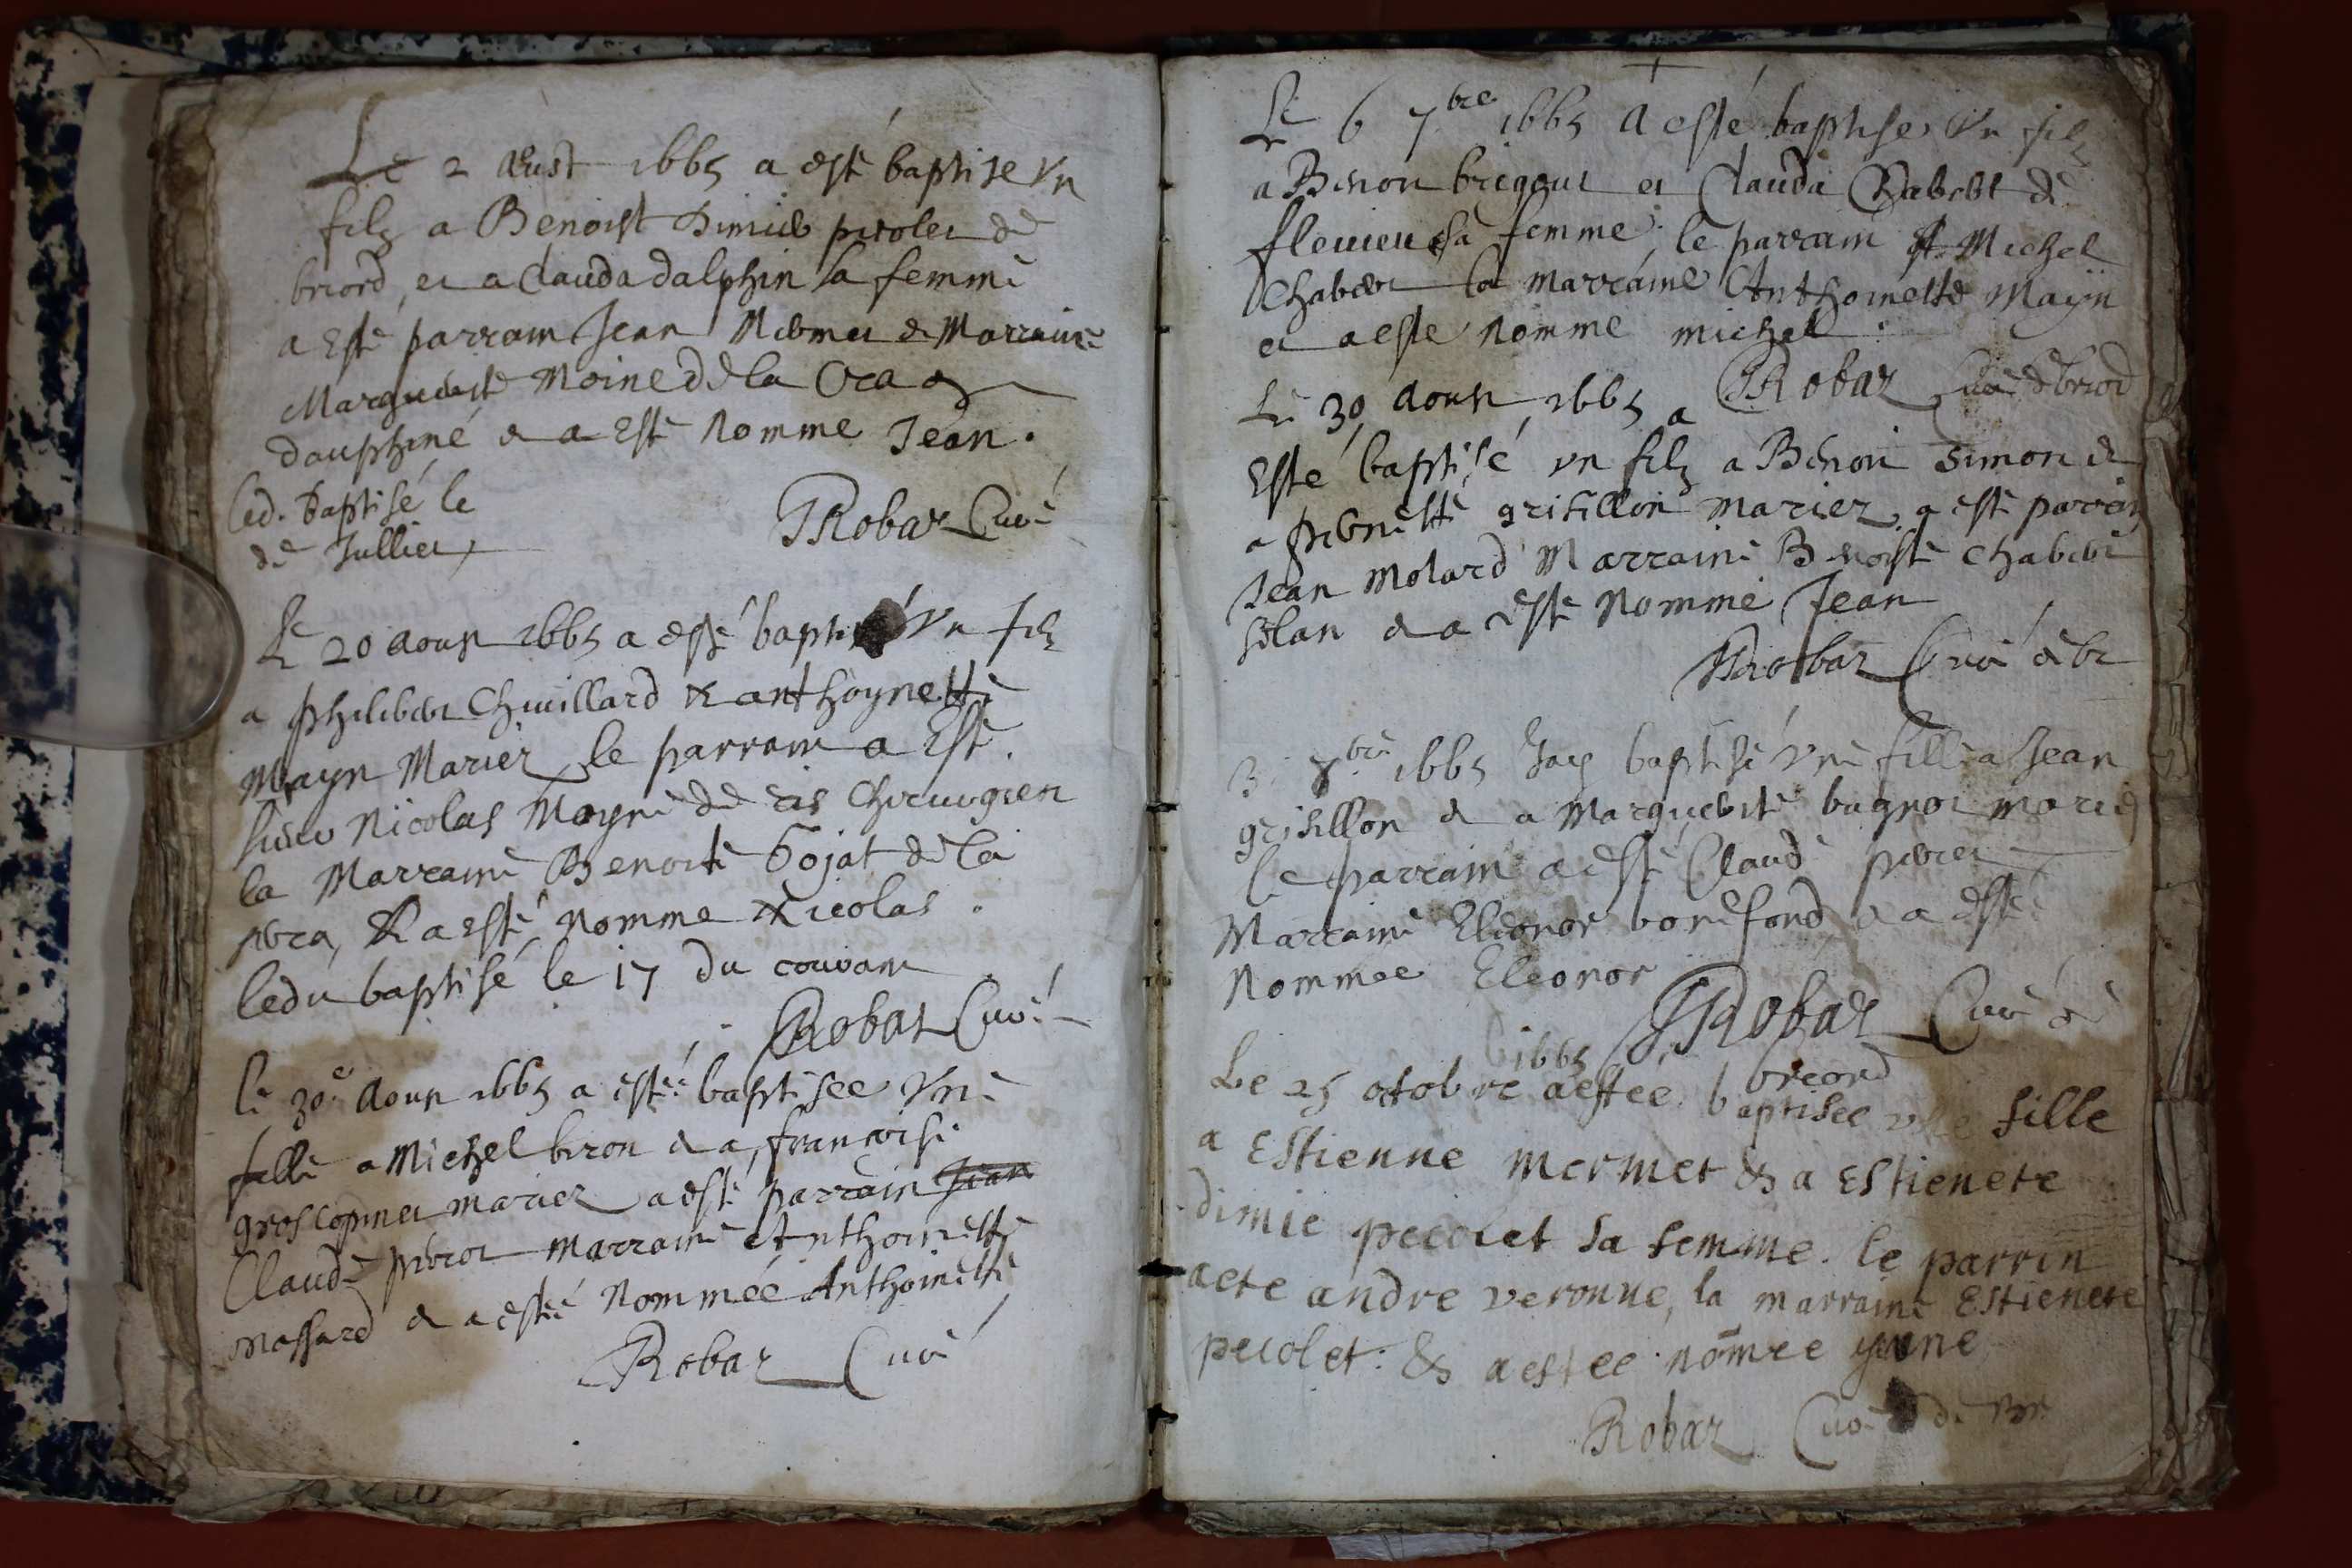 Le 2 Aust 1665 a esté baptise vn
filz a Benoist Dimieb pecolet de
briord, et a Clauda dalphin sa femme
a Esté parrain Jean Mermet & Marraine
Marguerite Moine de la
dauphiné & a Esté Nomme Jean.
led. Baptisé le
de Jullier
JRobar Curé
Le 20 Aoust 1665 a esté baptisé vn filz
a philibert Chivillard & anthoynette
Mayn Mariez le parrain a Esté
sieur Nicolas Mayne de Chirurgien
la Marraine Benoite Gojat de la
& a esté Nomme Nicolas.
ledit baptisé le 17 du courant
JRobar Curé
le 30e Aoust 1665 a estée baptisee vne
fille a Michel bron & a francoise
groscopinet mariez a esté parrain Jean
Claude perret marraine Anthoinette
Massard & a estée Nommée Anthoinette
JRobar Curé
Le 6 7bre 1665 A esté baptise vn filz
a Benoit et Clauda Chabert de
flevieu sa femme, le parrain st Michel
Chabert la marraine Anthoinette Mayn
et a este Nomme michel.
JRobar Curé d briord
Le 30 Aoust 1665 a
Esté baptisé vn filz a Benoit Simon &
a pernette grisillon mariez a esté parrain
Jean Molard Marraine Benoiste Chabert
& a esté Nommé Jean
JRobar Curé de br
3 8bre 1665 Jay baptisé vne fille a Jean
grisillon & a Marguerite bagnot marié
le parrain a esté Claude perret
Marraine Eleonor bonefond & a esté
Nommee Eleonor
JRobar Curé de
briord
1665
Le 25 octobre aestée baptisee vne fille
a Estienne mermet & a Estienete
dimie pecolet sa femme. le parrin
aete andre veronne, la marraine Estienete
pecolet. & aestee nōmee
Robar Curé de Br